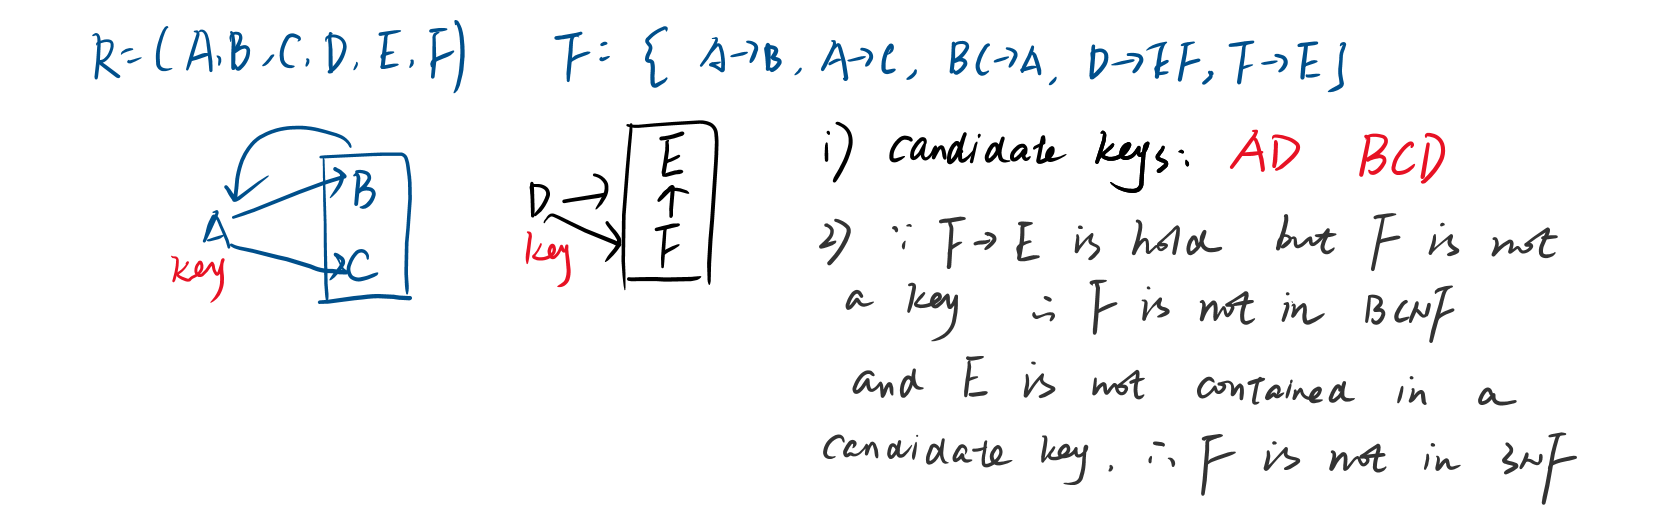 R=(A,B,C,D,E,F) F={ A→B, A→C, BC→A, D→EF, F→E}
i) candidate keys: AD BCD
B
A
key
C
E
D → ↑
key F
2) ∵ F→E is hold but F is not
a key ∴ F is not in BCNF
and E is not contained in a
candidate key. ∴ F is not in 3NF